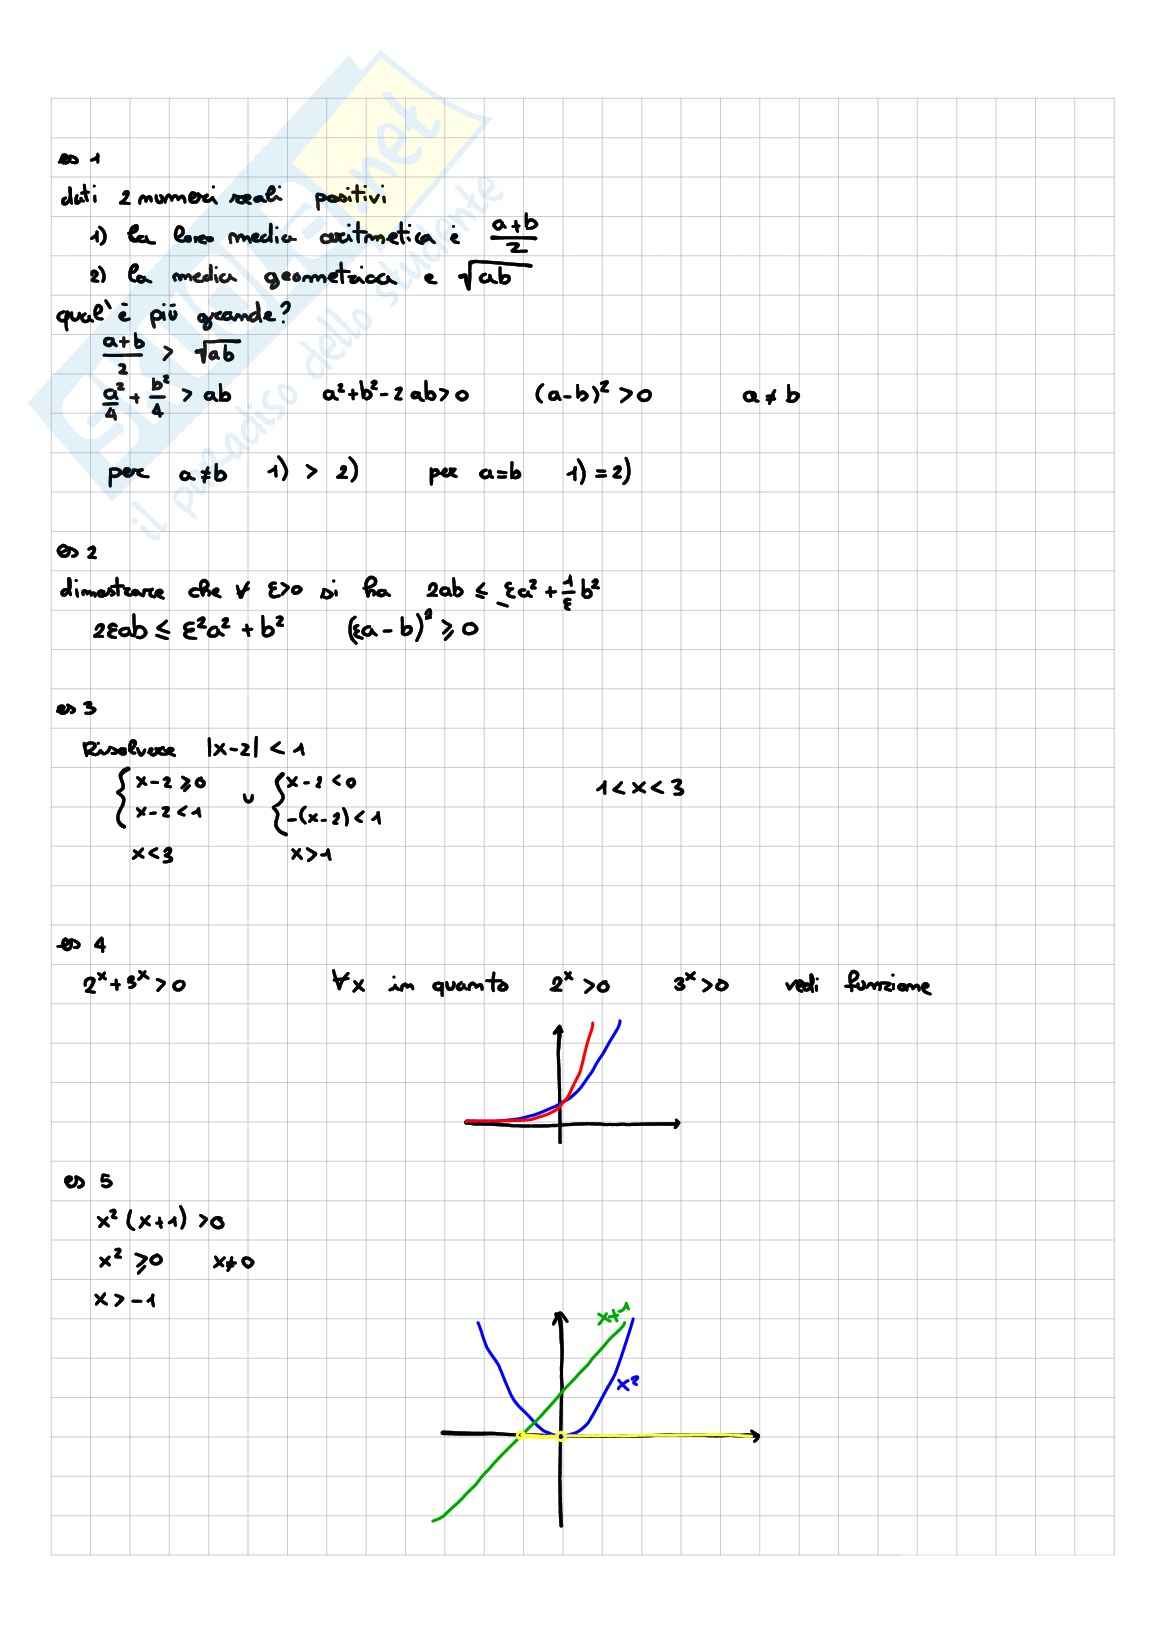 es 1
dati 2 numeri reali positivi
1) la loro media aritmetica è (a+b)/2
2) la media geometrica e √ab
qual'è più grande?
(a+b)/2 > √ab
a²/4 + b²/4 > ab   a²+b²-2ab>0   (a-b)²>0   a≠b
per a≠b 1) > 2)   per a=b 1) = 2)
es 2
dimostrare che ∀ ε>0 si ha 2ab ≤ εa² + 1/ε b²
2εab ≤ ε²a² + b²   (εa-b)² ⩾ 0
es 3
Risolvere |x-2| < 1
{ x-2 ⩾ 0   ∪   { x-2 < 0   1 < x < 3
x-2 < 1   -(x-2) < 1
x<3   x>1
es 4
2ˣ+3ˣ>0   ∀x in quanto 2ˣ>0   3ˣ>0   vedi funzione
es 5
x²(x+1) >0
x² ⩾0   x≠0
x > -1
x+1
x²
SKUOLA.net
il paradiso dello studente